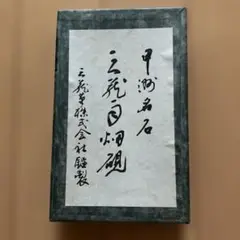 甲州名石
三龍雨畑硯
三龍本株式会社謹製